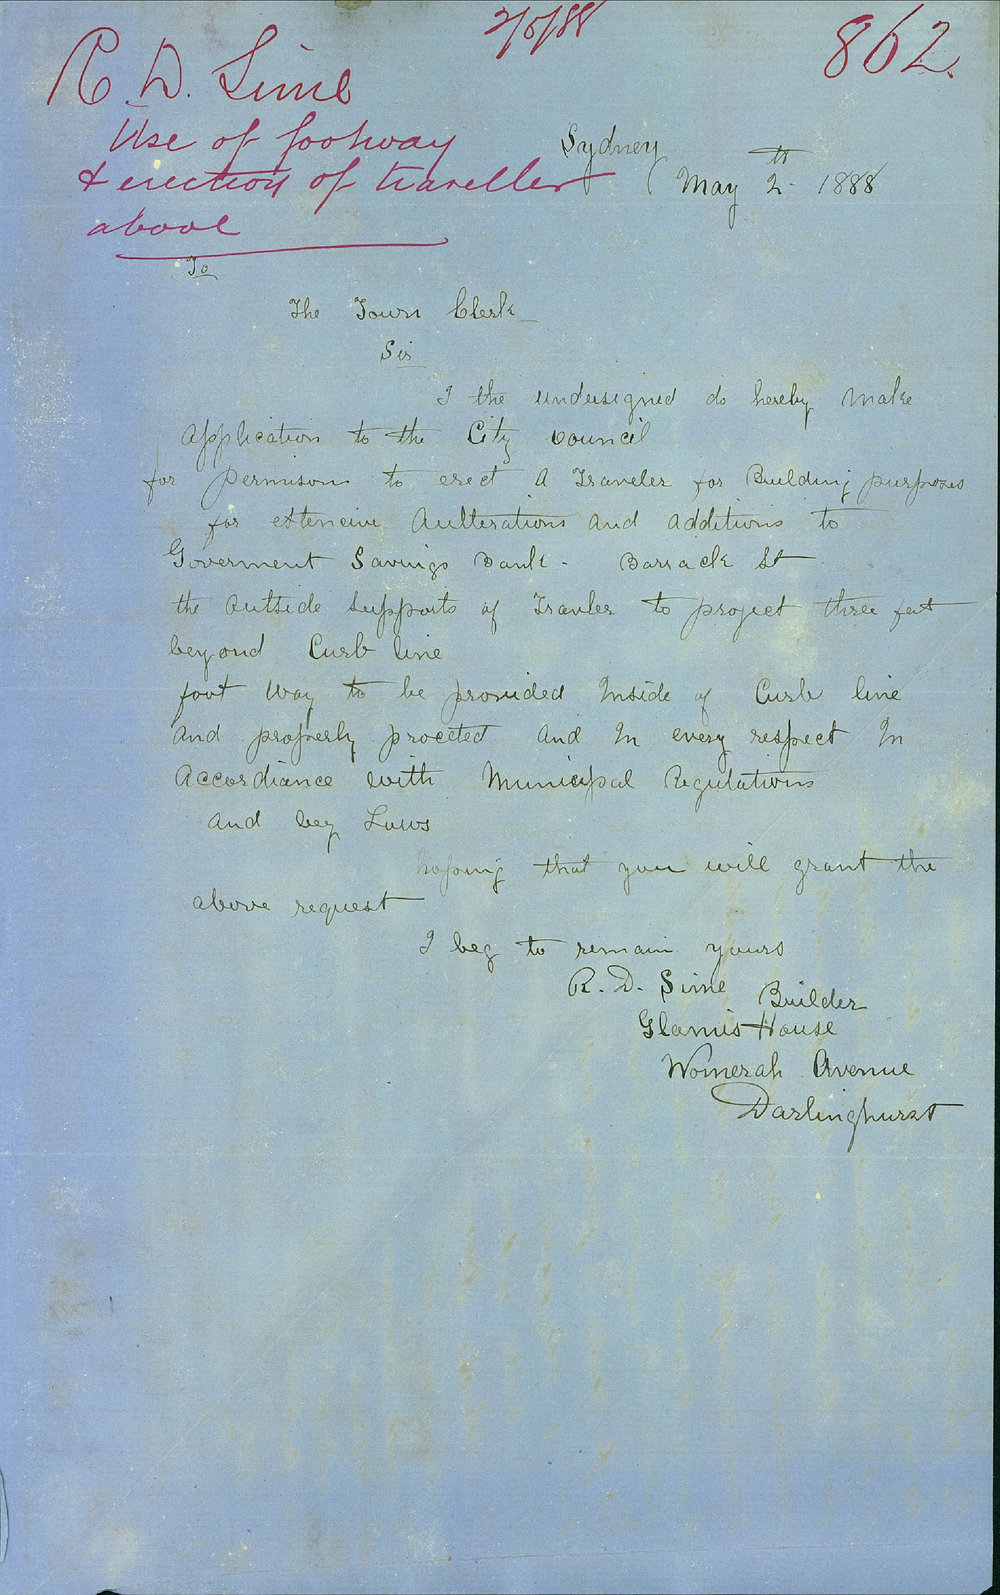 2/5/88
862.
R. D. Sime
Use of footway
& erection of traveller
above
Sydney
May 2th 1888
To
The Town Clerk
Sir
I the undersigned do hereby make
Application to the City Council
for permison to erect A Traveler for Building purposes
for extencive Aulterations and additions to
Goverment Savings Bank - Barrack St
the Outside Supports of Travler to project three feet
beyond Curb line
foot way to be provided Inside of Curb line
And properly procteted And In every respect In
Accordiance with Municipal Regulations
and bey Laws
hopoing that you will grant the
above request
I beg to remain yours
R. D. Sime Builder
Glamis House
Womerah Avenue
Darlinghurst